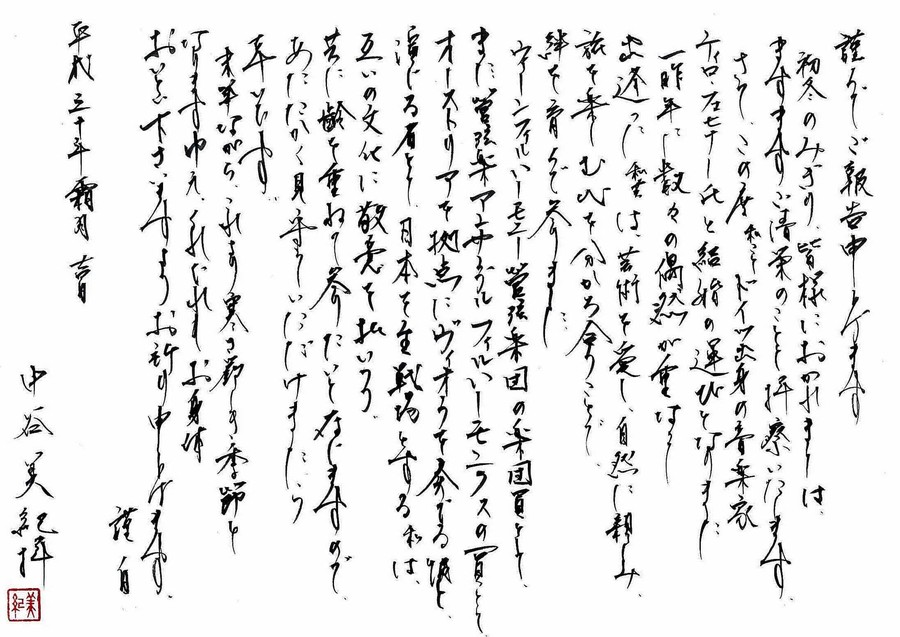 謹んでご報告申し上げます
初冬のみぎり、皆様におかれましては、
ますますご清栄のことと拝察いたします。
さて、この度 私こと ドイツ出身の音楽家
ティロ・フェヒナー氏と結婚の運びとなりました。
一昨年に数々の偶然が重なり
出逢った私共は、芸術を愛し、自然に親しみ、
旅を楽しむひとときを分かち合うことで、
絆を育んで参りました。
ウィーンフィルハーモニー管弦楽団の楽団員として、
また管弦楽アンサンブルフィルハーモニクスの一員として
オーストリアを拠点にヴィオラを奏でる彼と
演じる者として、日本を主戦場とする私は、
互いの文化に敬意を払いつつ
共に齢を重ねて参りたいと存じますので、
あたたかく見守っていただけましたら
幸いです。
末筆ながら、これより寒さ厳しき季節と
なりますゆえ、くれぐれもお身体
おいといくださいますようお祈り申し上げます。
謹白
平成三十年霜月 吉日
中谷美紀 拝
美紀